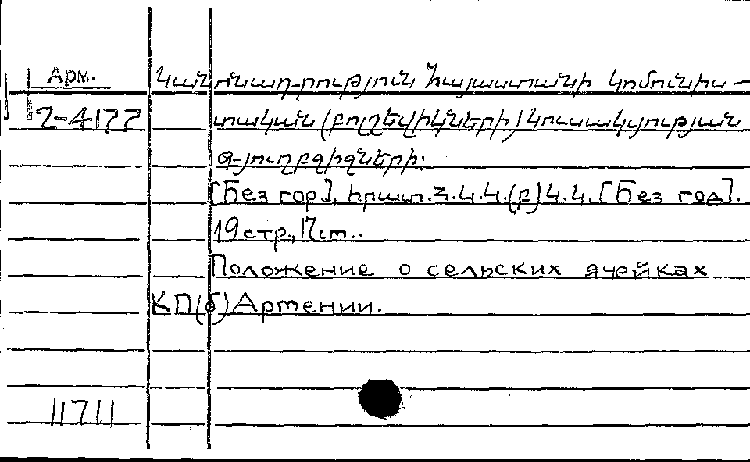 Арм.
2-4177
Կանոնադրություն Հայաստանի կոմունիս-
տական (բոլշևիկների) կուսակցության
գյուղբջիջների:
[Без гор], հրատ. Հ.Կ.Կ.(բ) Կ.Կ. [Без год].
19 стр., 17см..
Положение о сельских ячейках
КП(б) Армении.
11711